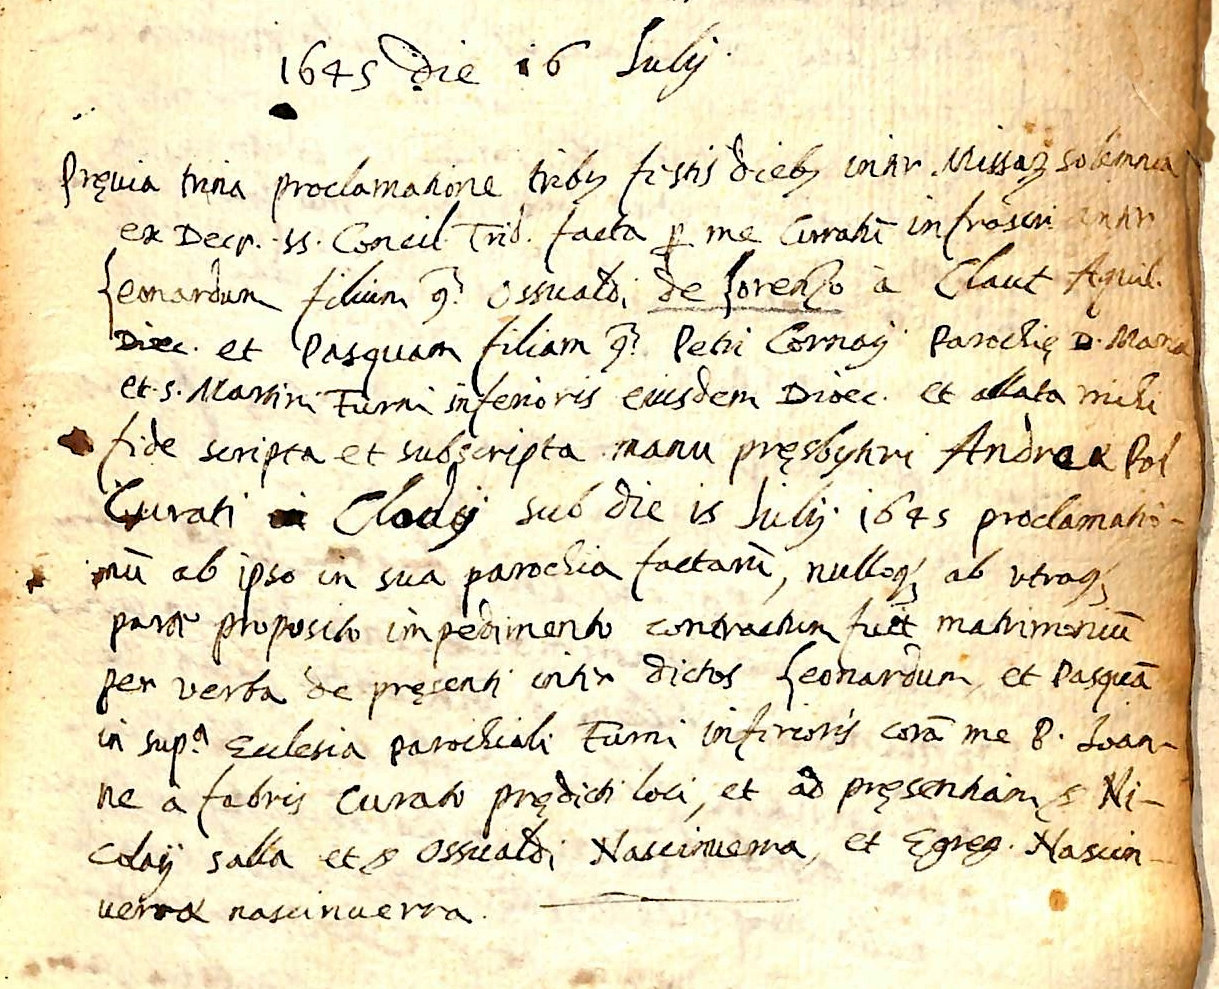 1645 die 16 Iulij.
Pręvia trina proclamatione tribꝰ festis diebꝰ inter Missaꝝ solemnia
ex Decr. ss. Concil. Trid. facta ꝑ me Curatū infrascri. inter
Leonardum filium q̃. Ossualdi de Lorenzo à Claut Aquil.
Diec. et Pasquam filiam q̃. Petri Cornaij Parochię D. Maria
et S. Martini Furni inferioris eiusdem Dioec. et allata mihi
fide scripta et subscripta manu pręsbyteri Andreæ Pol
Curati Claudij sub die is Iulij 1645 proclamatio-
nū ab ipso in sua parochia factarū, nulloqꝫ ab vtraqꝫ
parte proposito impedimento contractum fuit matrimoniū
per verba de pręsenti inter dictos Leonardum, et Pasquā
in sup.ª Ecclesia parochiali Furni inferioris corā me P. Ioan-
ne à fabris Curato prędicti loci, et ad pręsentiam s Ni-
colaij salla et s Ossualdi Nascinuerra, et Egreg. Nascin-
uerræ nascinuerra.